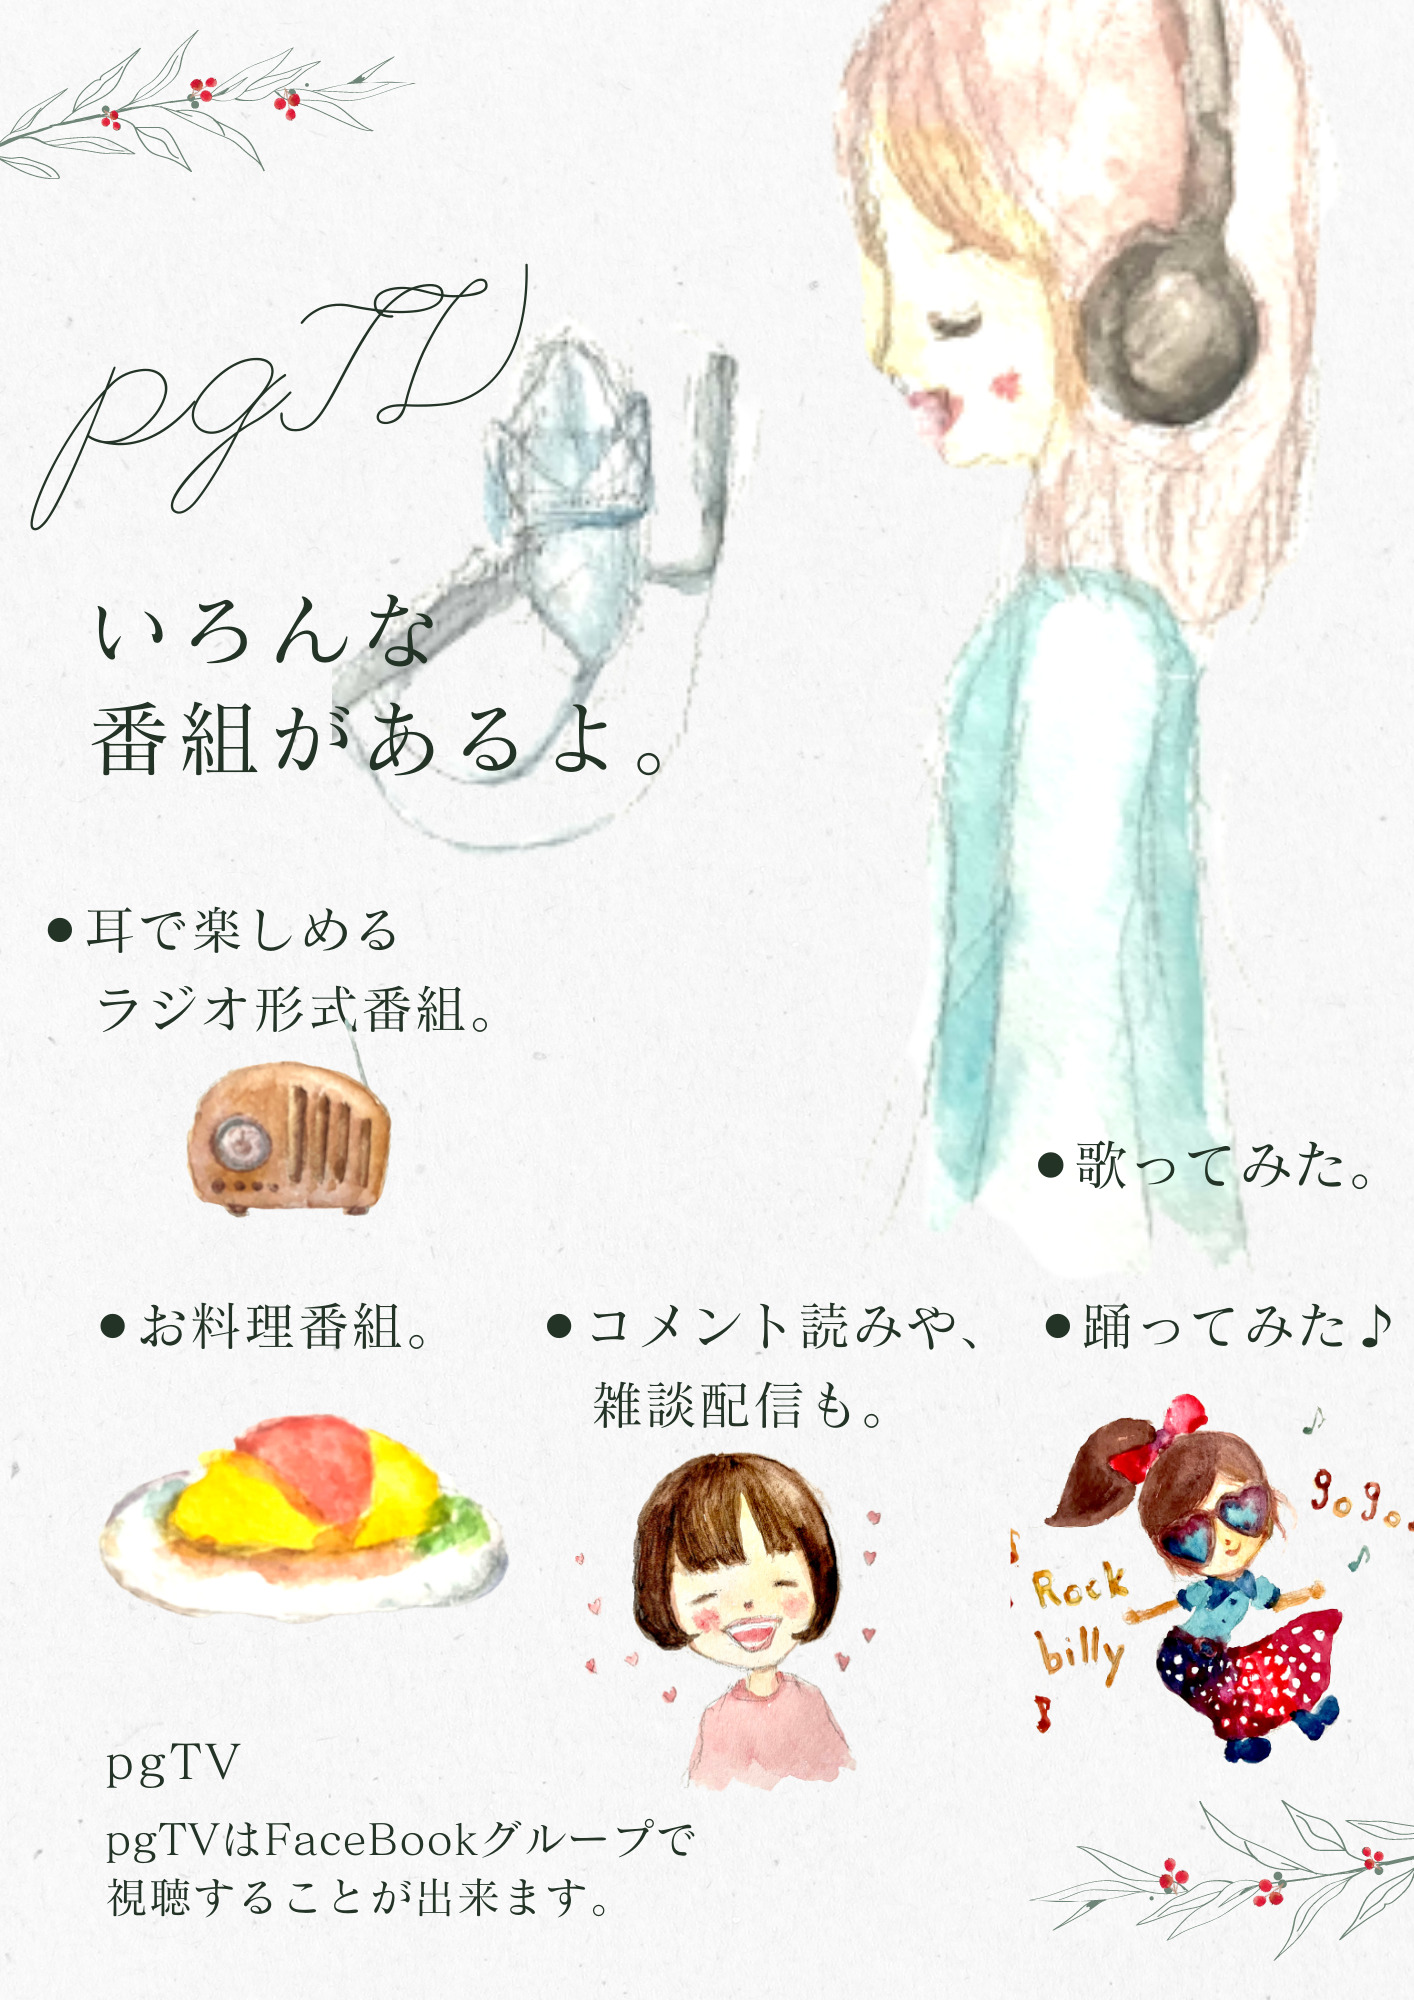 pgTV
いろんな
番組があるよ。
●耳で楽しめる
ラジオ形式番組。
●歌ってみた。
●お料理番組。
●コメント読みや、
雑談配信も。
●踊ってみた♪
gogo
Rock
billy
pgTV
pgTVはFaceBookグループで
視聴することが出来ます。